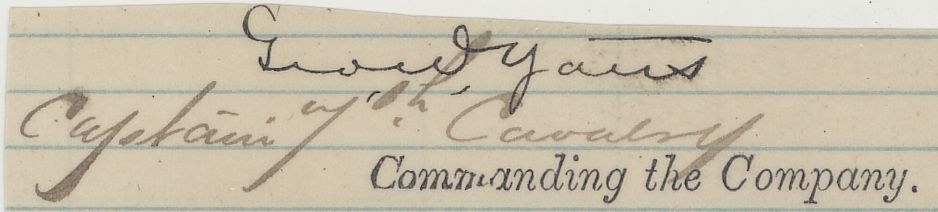 Geo W Yates
Captain 7th Cavalry
Commanding the Company.